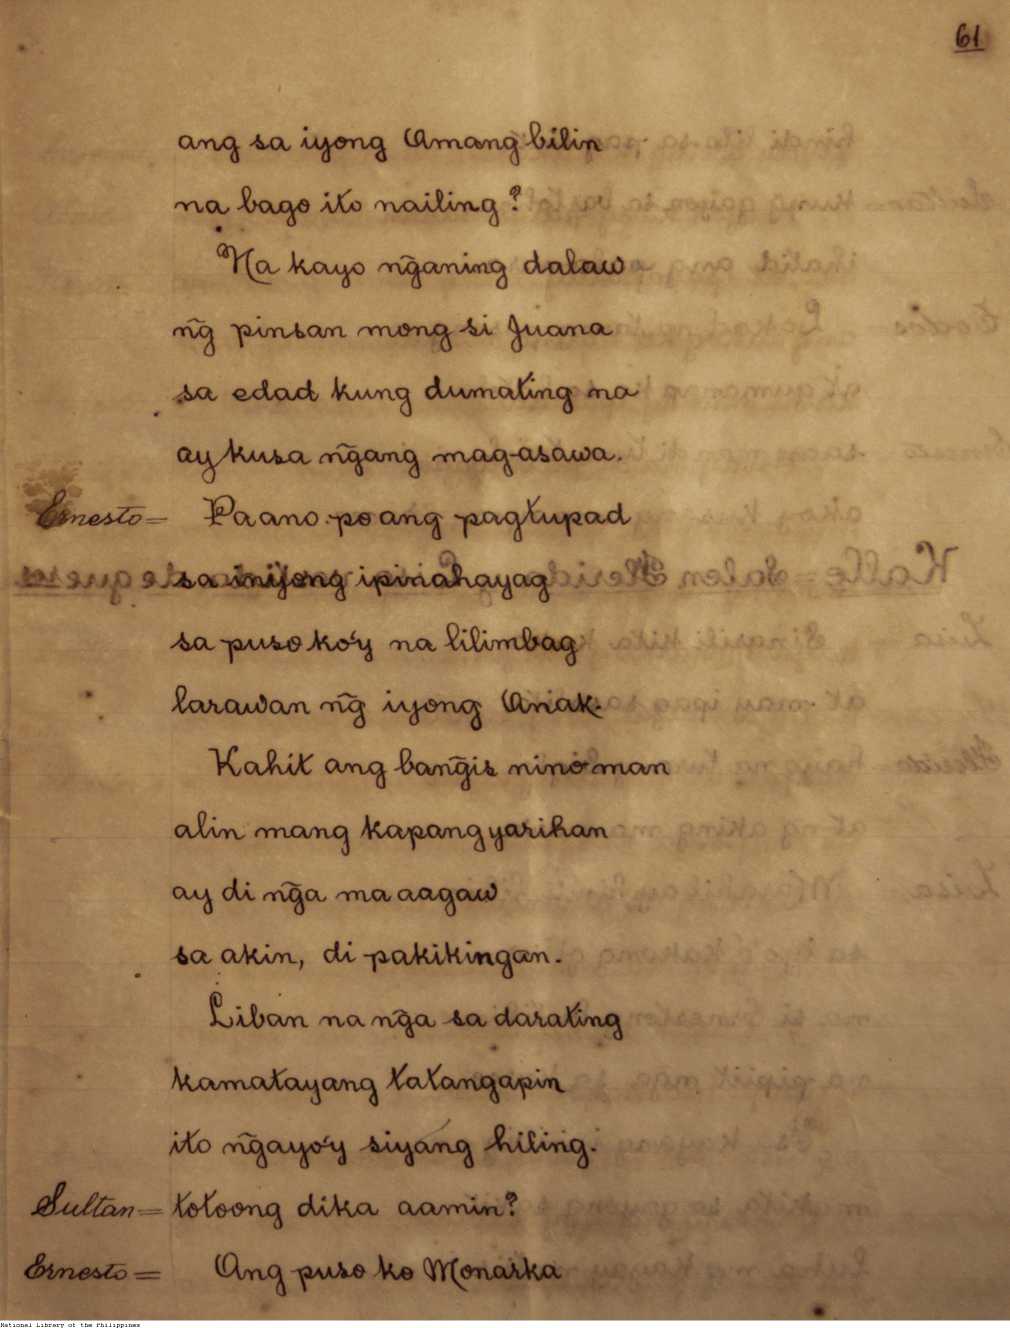 61
ang sa iyong Amang bilin
na bago ito nailing?
Na kayo ng̃aning dalaw
ng̃ pinsan mong si Juana
sa edad kung dumating na
ay kusa ng̃ang mag-asawa.
Ernesto= Paano po ang pagtupad
sa iniyong ipinahayag
sa puso ko'y na lilimbag
larawan ng̃ iyong Anak.
Kahit ang bang̃is nino man
alin mang kapangyarihan
ay di ng̃a ma aagaw
sa akin, di pakikingan.
Liban na ng̃a sa darating
kamatayang tatangapin
ito ng̃ayo'y siyang hiling.
Sultan= totoong dika aamin?
Ernesto= Ang puso ko Monarka
National Library of the Philippines